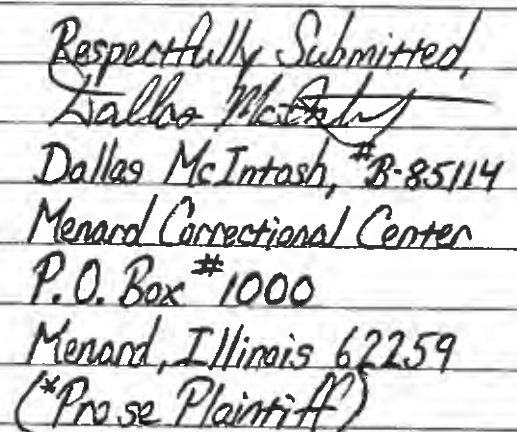 Respectfully Submitted,
Dallas McIntosh
Dallas McIntosh, #B-85114
Menard Correctional Center
P.O. Box #1000
Menard, Illinois 62259
(*Pro se Plaintiff)